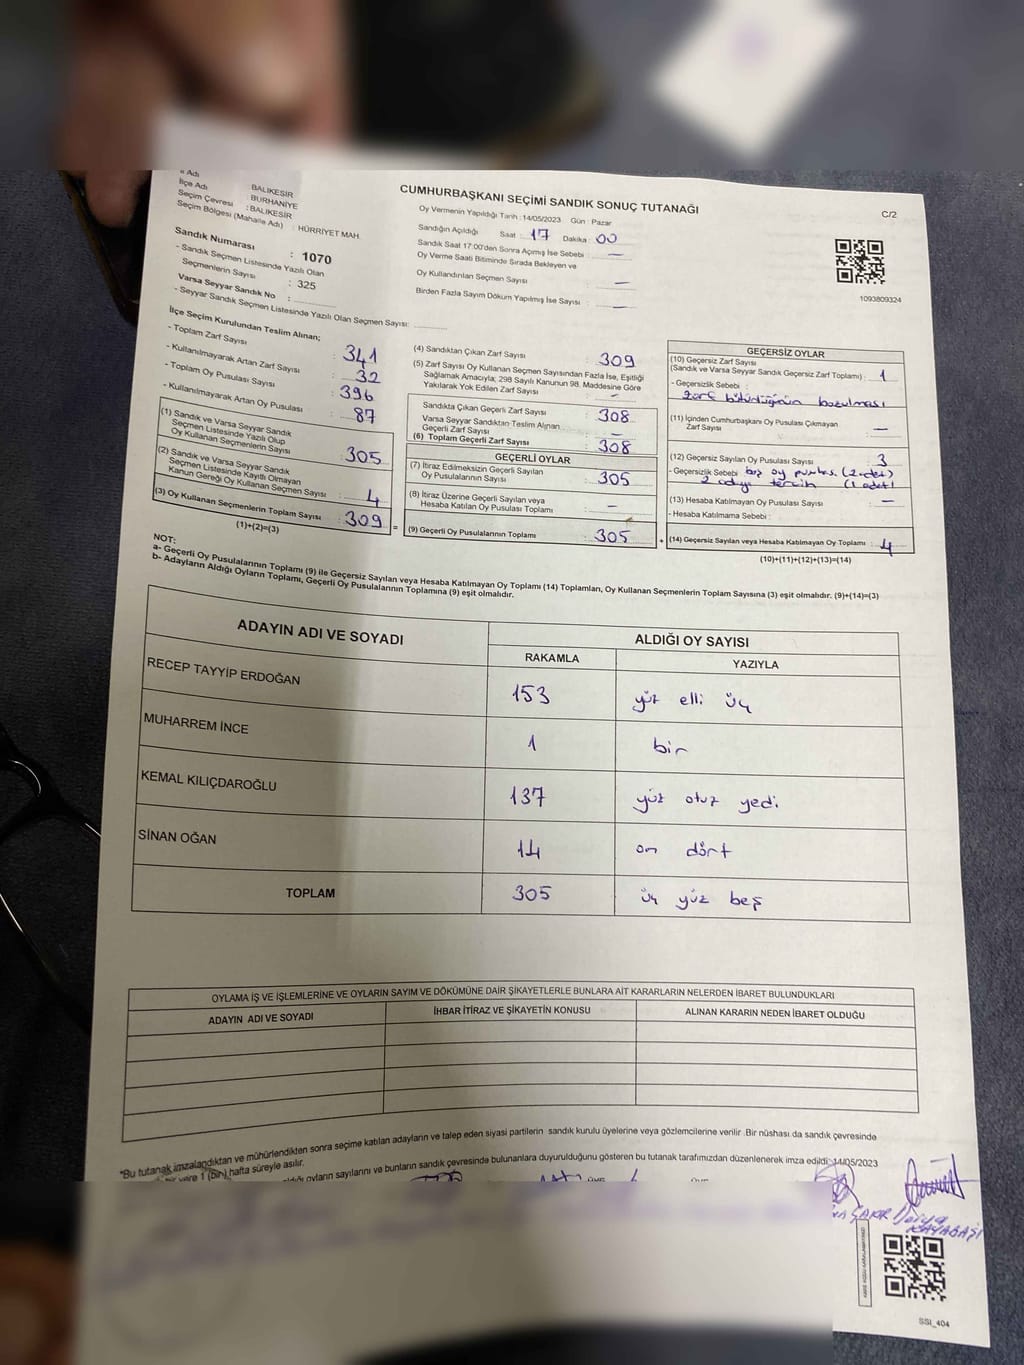 İl Adı
: BALIKESİR
İlçe Adı : BURHANİYE
Seçim Çevresi : BALIKESİR
Seçim Bölgesi (Mahalle Adı) : HÜRRİYET MAH.
CUMHURBAŞKANI SEÇİMİ SANDIK SONUÇ TUTANAĞI
C/2
Oy Vermenin Yapıldığı Tarih : 14/05/2023 Gün : Pazar
Sandığın Açıldığı Saat : 17 Dakika : 00
Sandık Saat 17:00'den Sonra Açılmış İse Sebebi : —
Oy Verme Saati Bitiminde Sırada Bekleyen ve
Oy Kullandırılan Seçmen Sayısı : —
Birden Fazla Sayım Döküm Yapılmış İse Sayısı : —
1093809324
Sandık Numarası : 1070
- Sandık Seçmen Listesinde Yazılı Olan
Seçmenlerin Sayısı : 325
Varsa Seyyar Sandık No :
- Seyyar Sandık Seçmen Listesinde Yazılı Olan Seçmen Sayısı:
İlçe Seçim Kurulundan Teslim Alınan;
- Toplam Zarf Sayısı : 341
- Kullanılmayarak Artan Zarf Sayısı : 32
- Toplam Oy Pusulası Sayısı : 396
- Kullanılmayarak Artan Oy Pusulası : 87
(1) Sandık ve Varsa Seyyar Sandık
Seçmen Listesinde Yazılı Olup
Oy Kullanan Seçmenlerin Sayısı : 305
(2) Sandık ve Varsa Seyyar Sandık
Seçmen Listesinde Kayıtlı Olmayan
Kanun Gereği Oy Kullanan Seçmen Sayısı : 4
(3) Oy Kullanan Seçmenlerin Toplam Sayısı : 309
(1)+(2)=(3)
(4) Sandıktan Çıkan Zarf Sayısı : 309
(5) Zarf Sayısı Oy Kullanan Seçmen Sayısından Fazla İse, Eşitliği
Sağlamak Amacıyla; 298 Sayılı Kanunun 98. Maddesine Göre
Yakılarak Yok Edilen Zarf Sayısı : —
Sandıkta Çıkan Geçerli Zarf Sayısı : 308
Varsa Seyyar Sandıktan Teslim Alınan
Geçerli Zarf Sayısı : —
(6) Toplam Geçerli Zarf Sayısı : 308
GEÇERLİ OYLAR
(7) İtiraz Edilmeksizin Geçerli Sayılan
Oy Pusulalarının Sayısı : 305
(8) İtiraz Üzerine Geçerli Sayılan veya
Hesaba Katılan Oy Pusulası Toplamı : —
(9) Geçerli Oy Pusulalarının Toplamı : 305
GEÇERSİZ OYLAR
(10) Geçersiz Zarf Sayısı
(Sandık ve Varsa Seyyar Sandık Geçersiz Zarf Toplamı) : 1
- Geçersizlik Sebebi :
zarf bütünlüğünün bozulması
(11) İçinden Cumhurbaşkanı Oy Pusulası Çıkmayan
Zarf Sayısı : —
(12) Geçersiz Sayılan Oy Pusulası Sayısı : 3
- Geçersizlik Sebebi : boş oy pusulası (2 adet)
2 adayı tercih (1 adet)
(13) Hesaba Katılmayan Oy Pusulası Sayısı : —
- Hesaba Katılmama Sebebi :
(14) Geçersiz Sayılan veya Hesaba Katılmayan Oy Toplamı : 4
(10)+(11)+(12)+(13)=(14)
NOT:
a- Geçerli Oy Pusulalarının Toplamı (9) ile Geçersiz Sayılan veya Hesaba Katılmayan Oy Toplamı (14) Toplamları, Oy Kullanan Seçmenlerin Toplam Sayısına (3) eşit olmalıdır. (9)+(14)=(3)
b- Adayların Aldığı Oyların Toplamı, Geçerli Oy Pusulalarının Toplamına (9) eşit olmalıdır.
ADAYIN ADI VE SOYADI
ALDIĞI OY SAYISI
RAKAMLA YAZIYLA
RECEP TAYYİP ERDOĞAN 153 yüz elli üç
MUHARREM İNCE 1 bir
KEMAL KILIÇDAROĞLU 137 yüz otuz yedi
SİNAN OĞAN 14 on dört
TOPLAM 305 üç yüz beş
OYLAMA İŞ VE İŞLEMLERİNE VE OYLARIN SAYIM VE DÖKÜMÜNE DAİR ŞİKAYETLERLE BUNLARA AİT KARARLARIN NELERDEN İBARET BULUNDUKLARI
ADAYIN ADI VE SOYADI İHBAR İTİRAZ VE ŞİKAYETİN KONUSU ALINAN KARARIN NEDEN İBARET OLDUĞU
"Bu tutanak imzalandıktan ve mühürlendikten sonra seçime katılan adayların ve talep eden siyasi partilerin sandık kurulu üyelerine veya gözlemcilerine verilir. Bir nüshası da sandık çevresinde
yere 1 (bir) hafta süreyle asılır.
oyların sayılarını ve bunların sandık çevresinde bulunanlara duyurulduğunu gösteren bu tutanak tarafımızdan düzenlenerek imza edildi. 14/05/2023
ÇAKIR Derya
KAYABAŞI
SSI_404